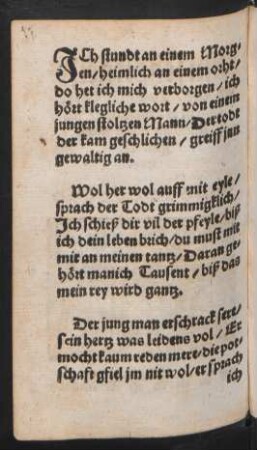 ICh stundt an einem Morg⸗
gen/heimlich an einem orht/
do het ich mich verborgen/ich
hört klegliche wort/von einem
jungen stoltzen Mann/Der todt
der kam geschlichen/greiff jnn
gewaltig an.
Wol her wol auff mit eyle/
sprach der Todt grimmigklich/
Ich schieß dir vil der pfeyle/biß
ich dein leben brich/du must mit
mit an meinen tantz/Daran ge⸗
hört manich Tausent/biß das
mein rey wird gantz.
Der jung man erschrack sere/
sein hertz was leidens vol/Er
mocht kaum reden mere/die pot⸗
schaft gfiel jm nit wol/er sprach
ich